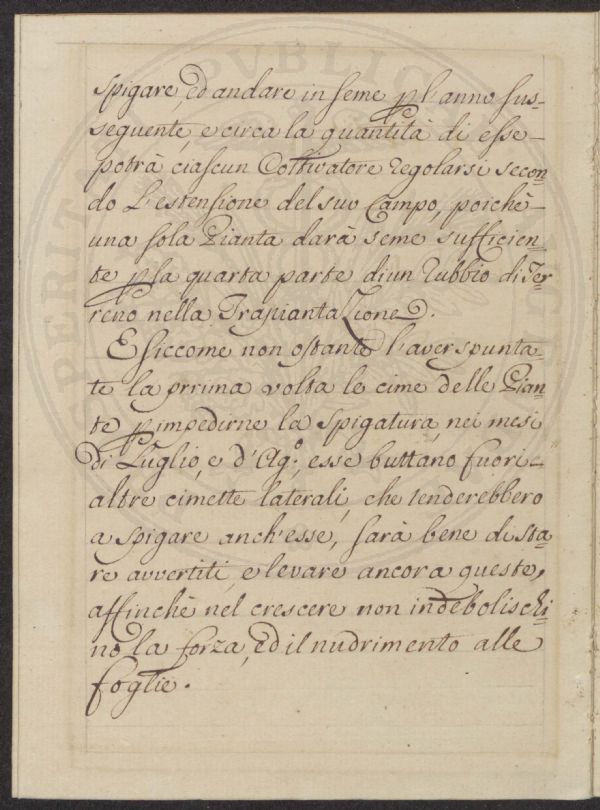 spigare, ed andare in seme p l'anno sus-
seguente, e circa la quantità di esse
potrà ciascun Coltivatore regolarsi secon-
do l'estensione del suo Campo, poichè
una sola Pianta darà seme sufficien-
te p la quarta parte di un Rubbio di Ter-
reno nella Trapiantazione.
E siccome non ostante l'aver spunta-
te la prrima volta le cime delle Pian-
te p impedirne la spigatura, nei mesi
di Luglio, e d'Ag.o, esse buttano fuori
altre cimette laterali, che tenderebbero
a spigare anch'esse, sarà bene di sta-
re avvertiti, e levare ancora queste,
affinchè nel crescere non indebolischi-
no la forza, ed il nudrimento alle
foglie.